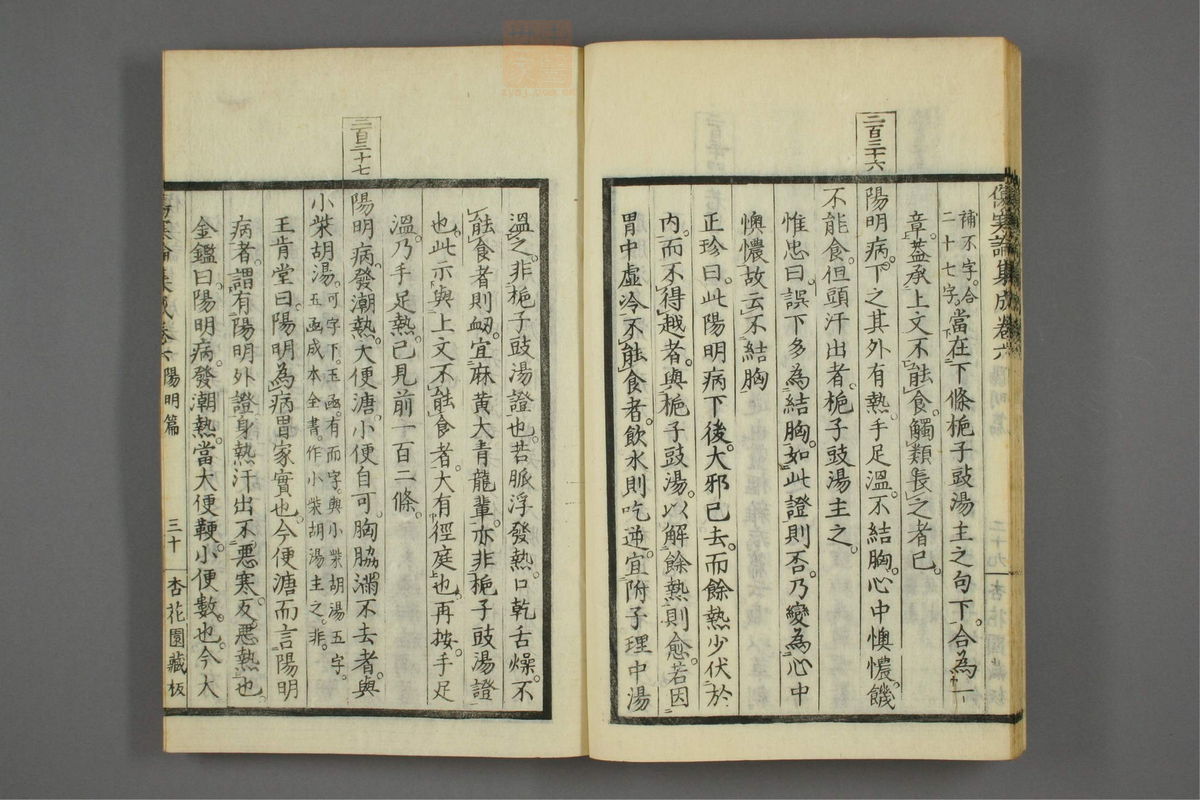 傷寒論集成卷六
補不字。合
二十七字。當在下條梔子豉湯主之句下。合為一
章。蓋承上文不能食。觸類長之者已。
二百三十六
陽明病。下之其外有熱。手足溫。不結胸。心中懊憹。饑
不能食。但頭汗出者。梔子豉湯主之。
惟忠曰。誤下多為結胸。如此證則否。乃變為心中
懊憹。故云不結胸
正珍曰。此陽明病下後。大邪已去。而餘熱少伏於
內。而不得越者。與梔子豉湯。以解餘熱則愈。若因
胃中虛冷不能食者。飲水則吃逆。宜附子理中湯
溫之。非梔子豉湯證也。若脈浮發熱。口乾舌燥。不
能食者則衂。宜麻黃大青龍輩。亦非梔子豉湯證
也。此示與上文不能食者。大有徑庭也。再按。手足
溫。乃手足熱。已見前一百二條。
二百三十七
陽明病。發潮熱。大便溏。小便自可。胸脇滿不去者。與
小柴胡湯。可字下。玉函。有而字。與小柴胡湯五字。
玉函成本全書。作小柴胡湯主之。非。
王肯堂曰。陽明為病胃家實也。今便溏而言陽明
病者。謂有陽明外證身熱汗出不惡寒。反惡熱也。
金鑑曰。陽明病。發潮熱。當大便鞕。小便數也。今大
傷寒論集成卷六 陽明篇 三十 杏花園藏板